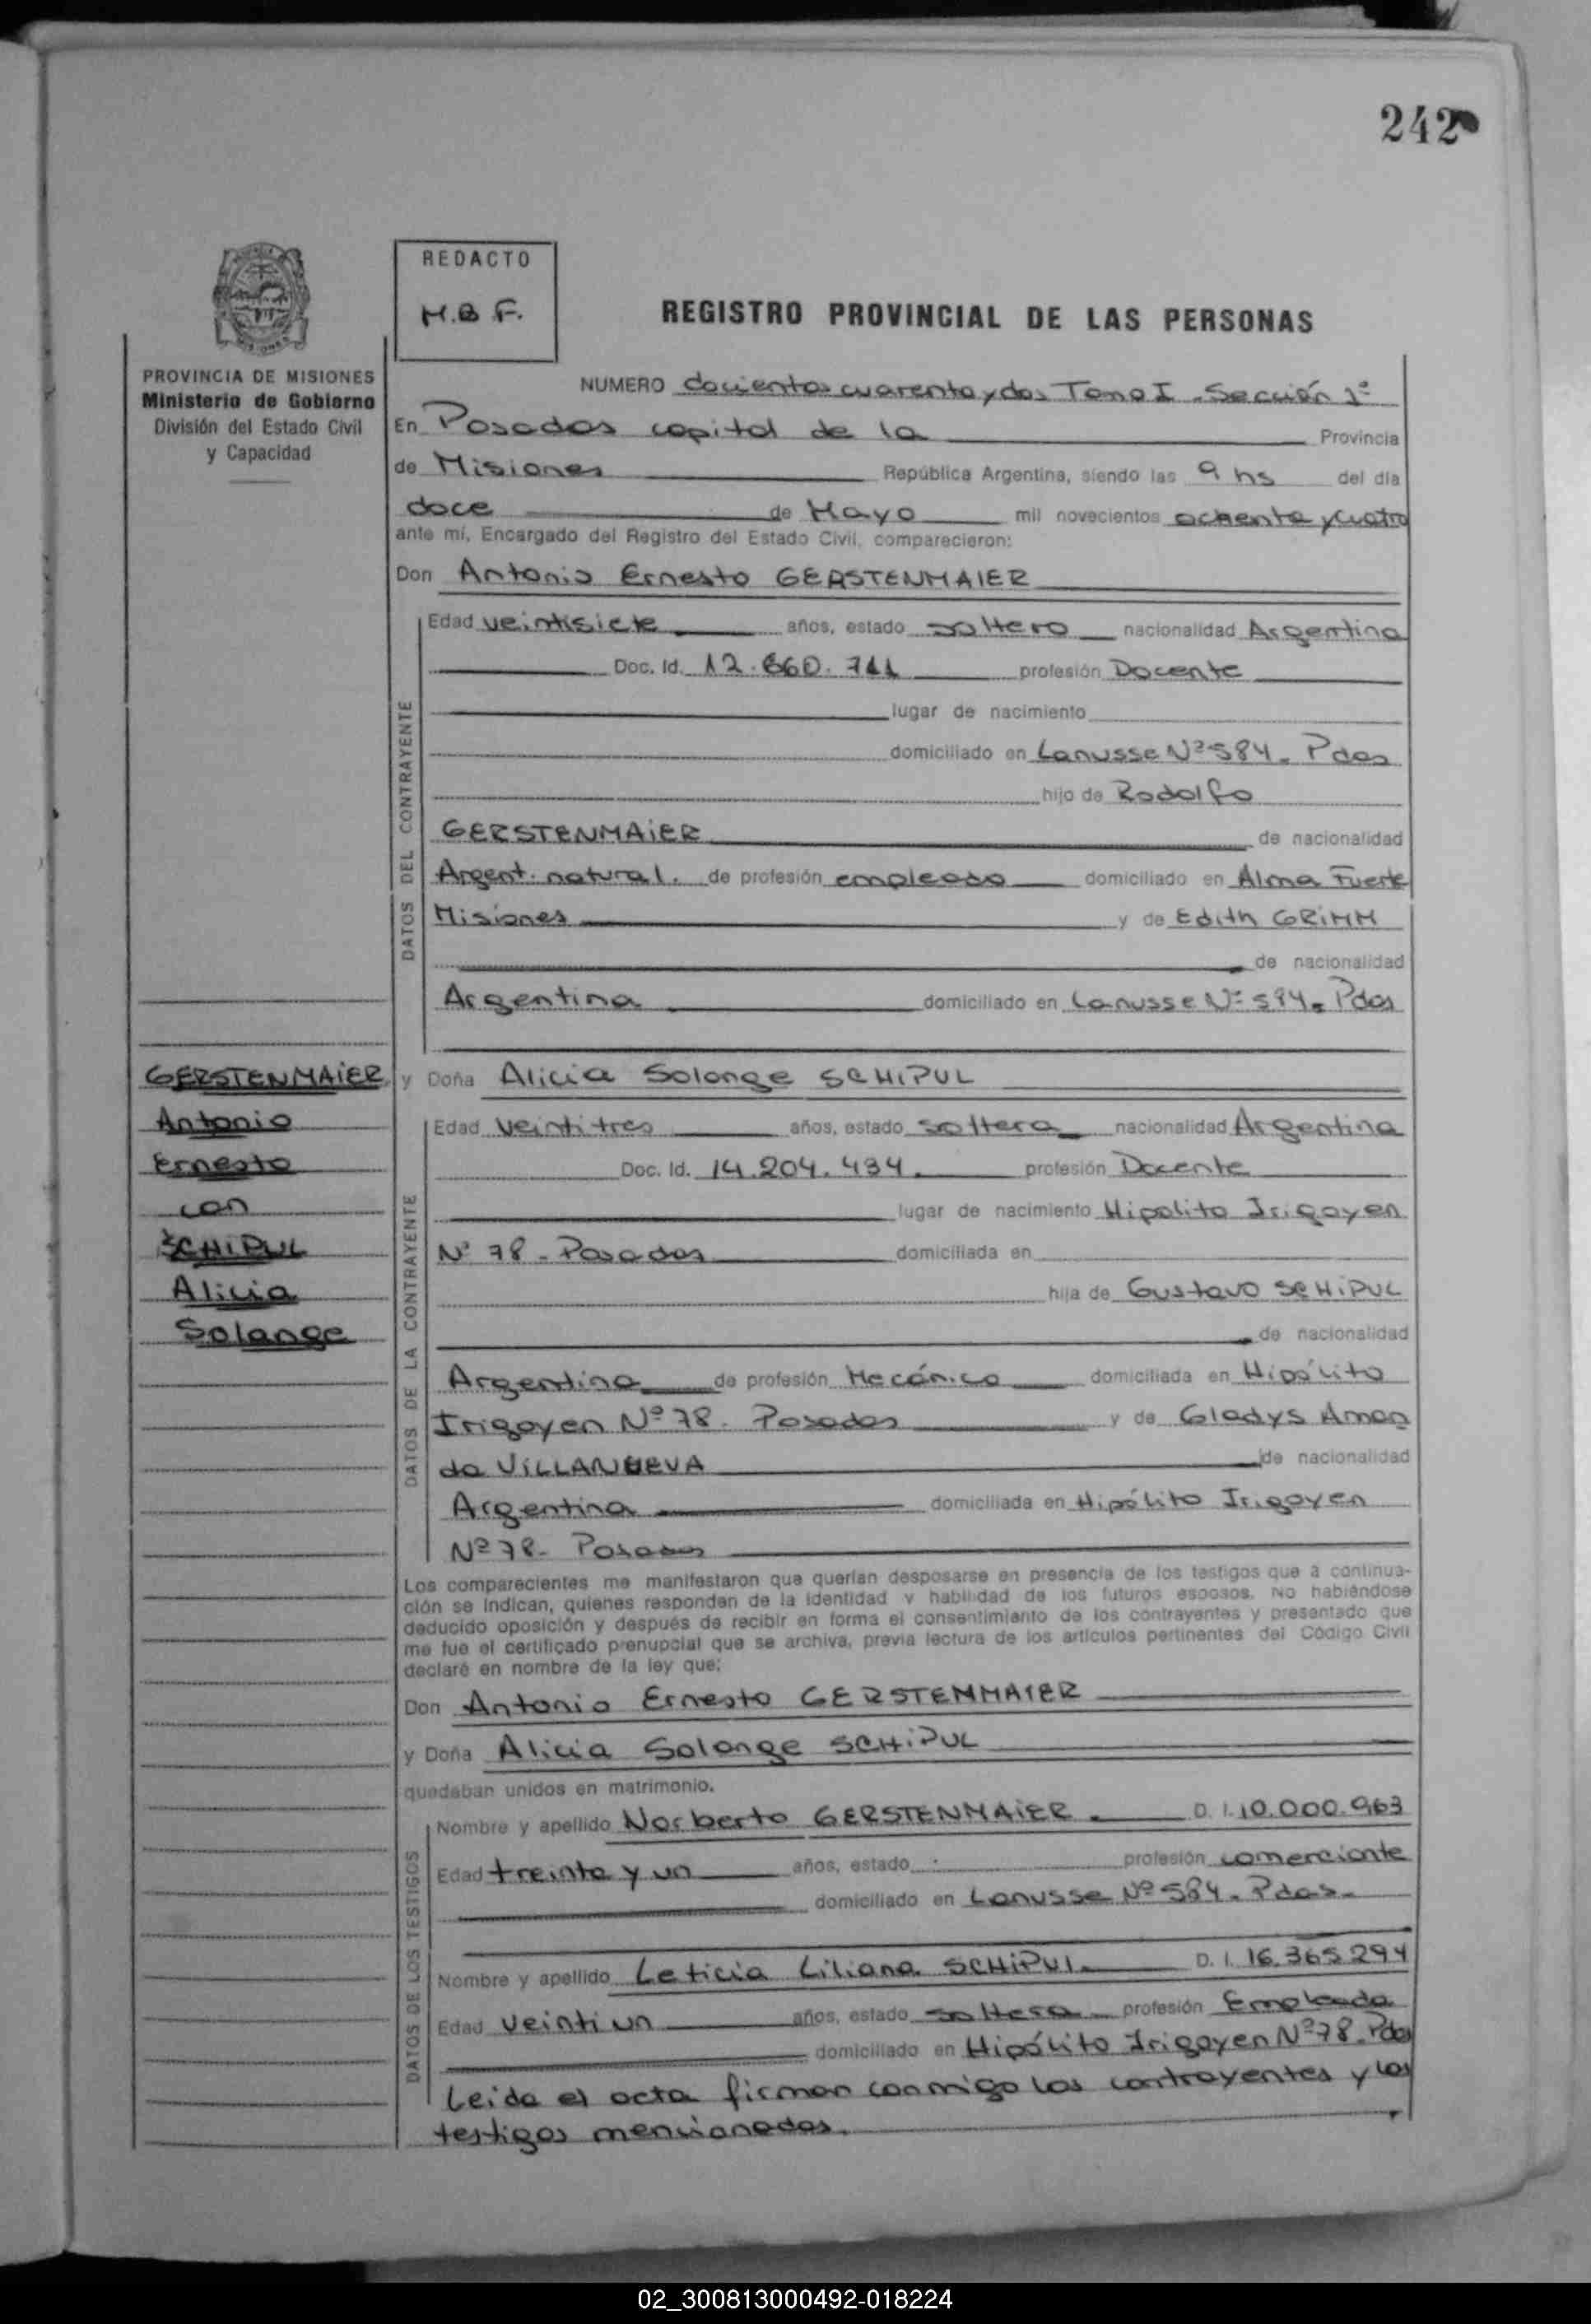 242
REDACTO
H.B.F.
REGISTRO PROVINCIAL DE LAS PERSONAS
PROVINCIA DE MISIONES
Ministerio de Gobierno
División del Estado Civil
y Capacidad
NUMERO docientos cuarenta y dos Tomo I - Sección 1ª
En Posadas capital de la Provincia
de Misiones República Argentina, siendo las 9 hs del día
doce de Mayo mil novecientos ochenta y cuatro
ante mí, Encargado del Registro del Estado Civil, comparecieron:
Don Antonio Ernesto GERSTENMAIER
DATOS DEL CONTRAYENTE
Edad veintisiete años, estado soltero nacionalidad Argentina
Doc. Id. 12.660.711 profesión Docente
lugar de nacimiento
domiciliado en Lanusse Nº 584. Pdas
hijo de Rodolfo
GERSTENMAiER de nacionalidad
Argent. natural. de profesión empleado domiciliado en Alma Fuerte
Misiones y de Edith GRiMM
de nacionalidad
Argentina domiciliado en Lanusse Nº 584. Pdas
GERSTENMAiER
Antonio
Ernesto
con
SCHiPUL
Alicia
Solange
y Doña Alicia Solange SCHiPUL
DATOS DE LA CONTRAYENTE
Edad veintitres años, estado soltera nacionalidad Argentina
Doc. Id. 14.204.434. profesión Docente
lugar de nacimiento Hipolito Irigoyen
Nº 78 - Posadas domiciliada en
hija de Gustavo SCHiPUL
de nacionalidad
Argentina de profesión Mecánico domiciliada en Hipólito
Irigoyen Nº 78. Posadas y de Gladys Aman
da ViLLANUEVA de nacionalidad
Argentina domiciliada en Hipólito Irigoyen
Nº 78- Posadas
Los comparecientes me manifestaron que querían desposarse en presencia de los testigos que a continua-
ción se indican, quienes responden de la identidad y habilidad de los futuros esposos. No habiéndose
deducido oposición y después de recibir en forma el consentimiento de los contrayentes y presentado que
me fue el certificado prenupcial que se archiva, previa lectura de los artículos pertinentes del Código Civil
declaré en nombre de la ley que:
Don Antonio Ernesto GERSTENMAIER
y Doña Alicia Solange SCHiPUL
quedaban unidos en matrimonio.
DATOS DE LOS TESTIGOS
Nombre y apellido Norberto GERSTENMAiER. D. I. 10.000.963
Edad treinta y un años, estado profesión comerciante
domiciliado en Lanusse Nº 584. Pdas.
Nombre y apellido Leticia Liliana SCHiPUL D. I. 16.365.294
Edad veintiun años, estado soltera profesión Empleada
domiciliado en Hipólito Irigoyen Nº 78. Pdas
Leida el acta firman conmigo los contrayentes y los
testigos mencionados.
02_300813000492-018224